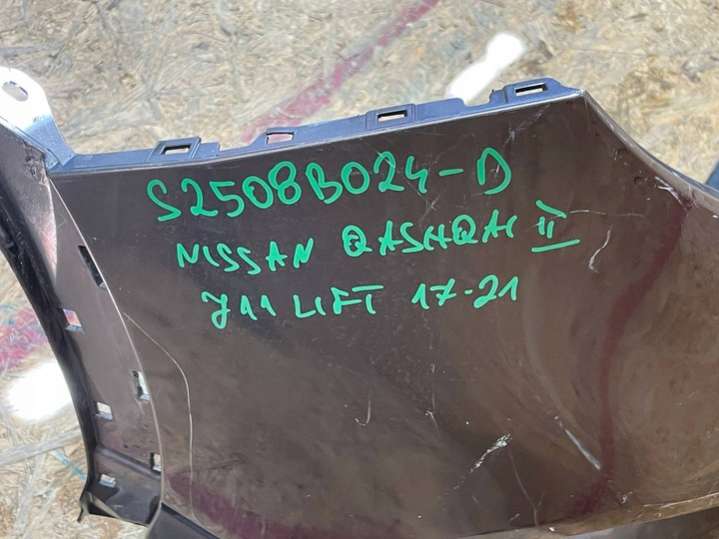 S2508B024-D
NISSAN QASHQAI II
J11 LIFT 17-21